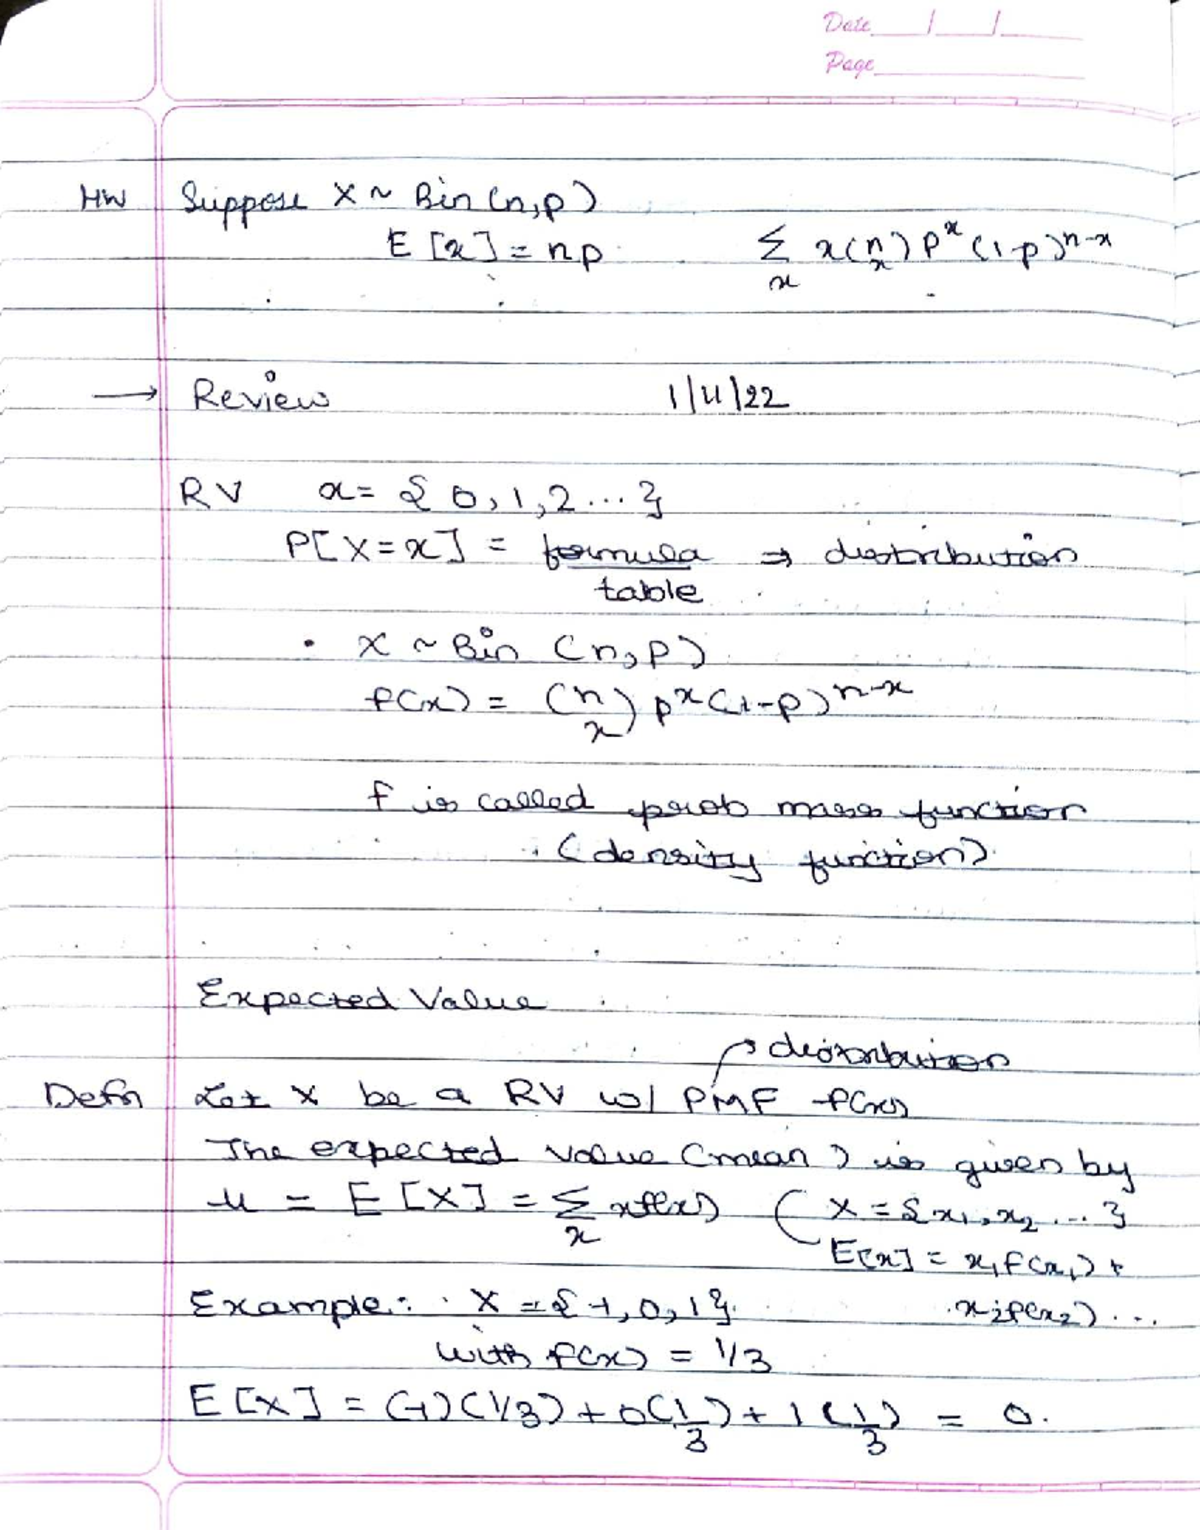 Date / /
Page
HW Suppose X ~ Bin (n,p)
E [x] = np. Σ_x x(n x) p^x (1-p)^{n-x}
→ Review 1/11/22
RV x = {0, 1, 2 ... }
P[X=x] = formula/table ⇒ distribution
• X ~ Bin (n, p)
f(x) = (n x) p^x (1-p)^{n-x}
f is called prob mass function
(density function)
Expected Value
→ distribution
Defn Let X be a RV w/ PMF f(x)
The expected value (mean) is given by
μ = E [X] = Σ_x x f(x) ( X = {x₁, x₂ ... }
E[x] = x₁ f(x₁) +
x₂ f(x₂) ...
Example: X = {-1, 0, 1}
with f(x) = 1/3
E [X] = (-1) (1/3) + 0(1/3) + 1 (1/3) = 0.